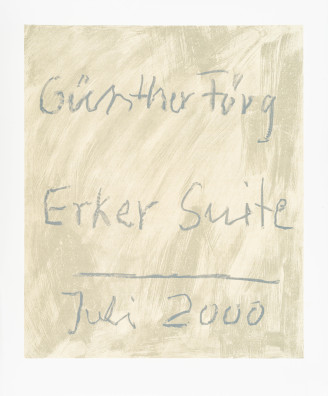 Günther Förg
Erker Suite
Juli 2000